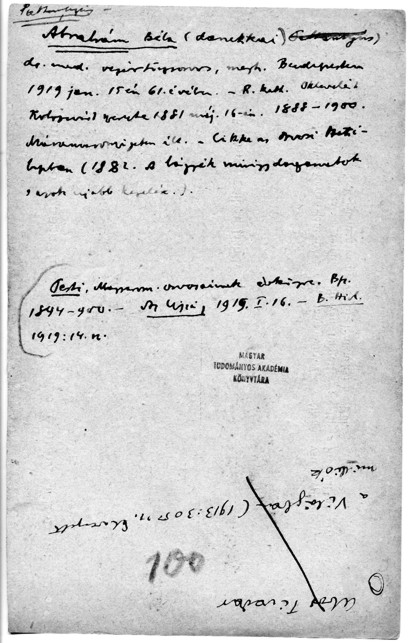 Ábrahám Béla (danckkai)
dr. med. vezértörzsorvos, megh. Budapesten
1919 jan. 15én 61. évében. – R. kath. Oklevelét
Kolozsvárt nyerte 1881 máj. 16-án. 1888–1900.
Máramarosszigeten élt. – Cikke az Orvosi Heti-
lapban (1882. A lágyék mirigydaganatok
s azok újabb kezelése.).
Pesti, Magyarorsz. orvosainak évkönyve. Bp.
1894–900. – Az Újság, 1919. I. 16. – B. Hirl.
1919: 14. n.
MAGYAR
TUDOMÁNYOS AKADÉMIA
KÖNYVTÁRA
a Világban (1913: 305 n.
100
Tivadar